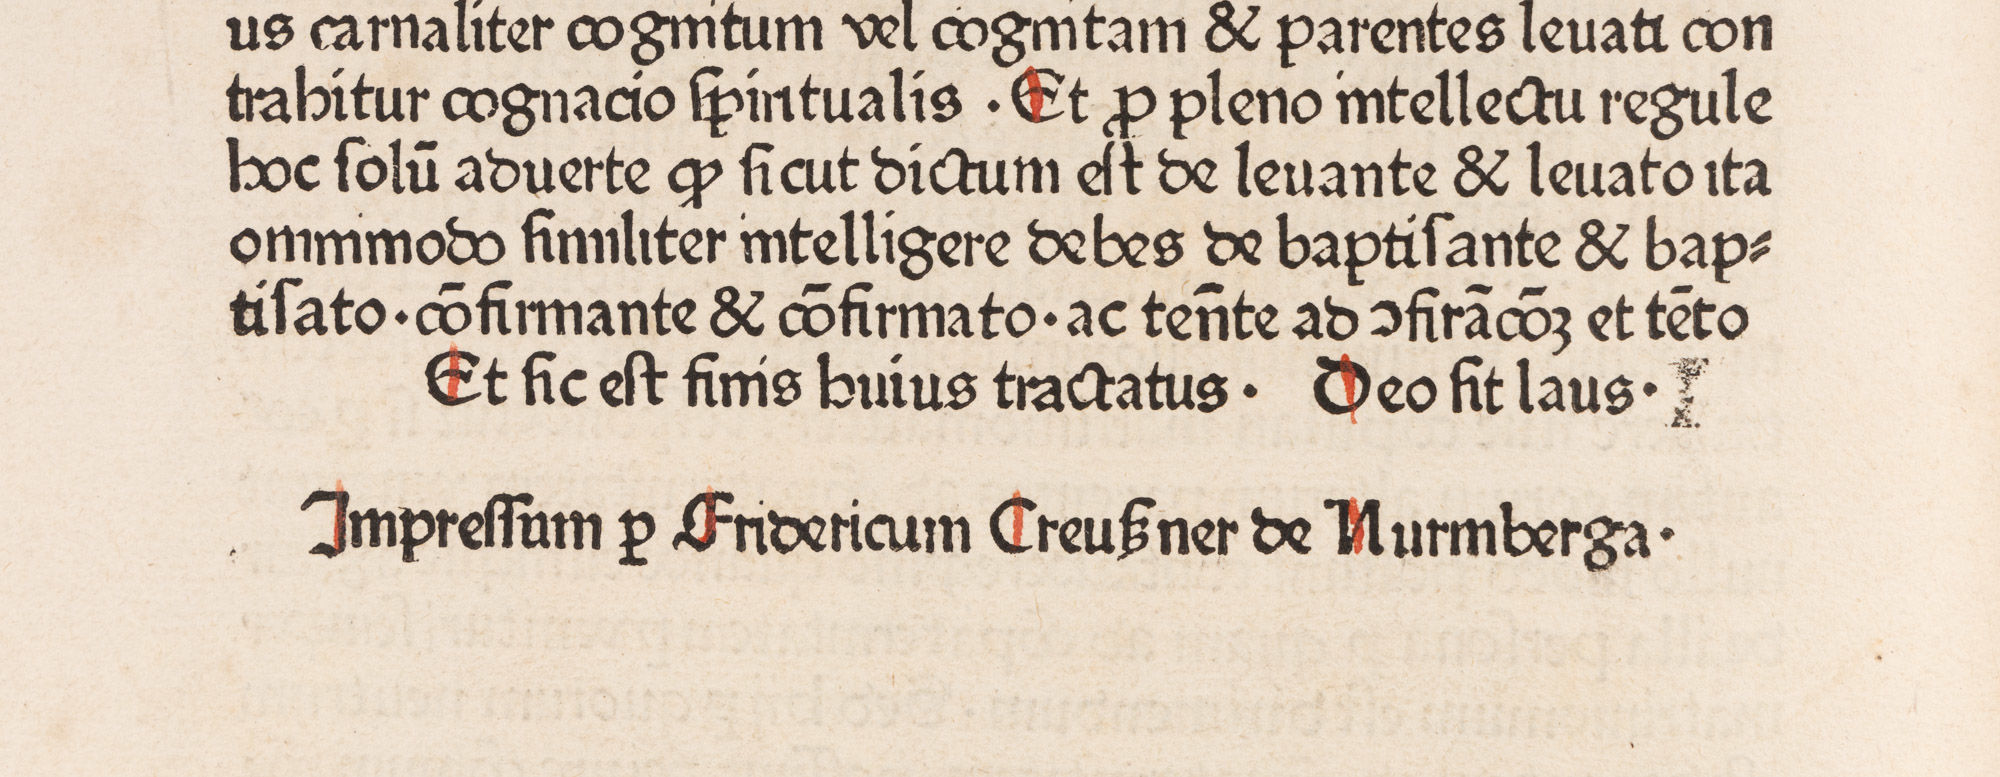 us carnaliter cognitum vel cognitam & parentes leuati con
trahitur cognacio sp̄iritualis · Et ꝓ pleno intellectu regule
hoc ſolū aduerte ꝙ ſicut dictum eſt de leuante & leuato ita
ommimodo ſimiliter intelligere debes de baptiſante & bap⸗
tiſato · cōfirmante & cōfirmato · ac ten̄te ad ↄfirācōꝫ et tēto
Et ſic eſt finis huius tractatus · Deo ſit laus ·
Impreſſum ꝑ Fridericum Creußner de Nurmberga ·